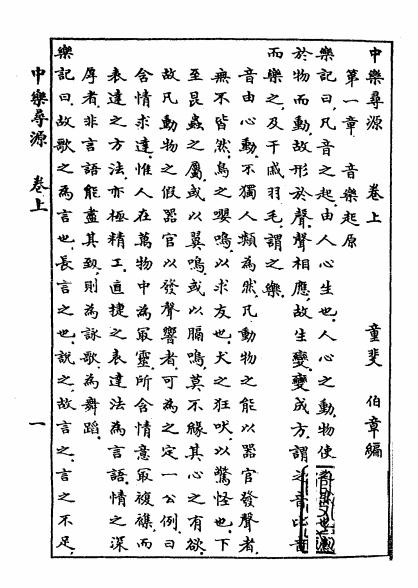 中樂尋源　卷上　童斐　伯章編
第一章　音樂起原
樂記曰，凡音之起，由人心生也，人心之動，物使
於物而動，故形於聲，聲相應，故生變，變成方，謂之音，比音
而樂之，及干戚羽毛，謂之樂，
音由心動，不獨人類為然，凡動物之能以器官發聲者，
無不皆然，鳥之嚶鳴，以求友也，犬之狂吠，以驚怪也，下
至昆蟲之屬，或以翼鳴，或以膈鳴，莫不緣其心之有欲，
故凡動物之假器官以發聲響者，可為之定一公例，曰
含情求達，惟人在萬物中為㝡靈，所含情意㝡複襍，而
表達之方法，亦極精工，直捷之表達法為言語，情之深
厚者，非言語能盡其致，則為詠歌，為舞蹈，
樂記曰，故歌之為言也，長言之也，說之，故言之，言之不足，
中樂尋源　卷上　一